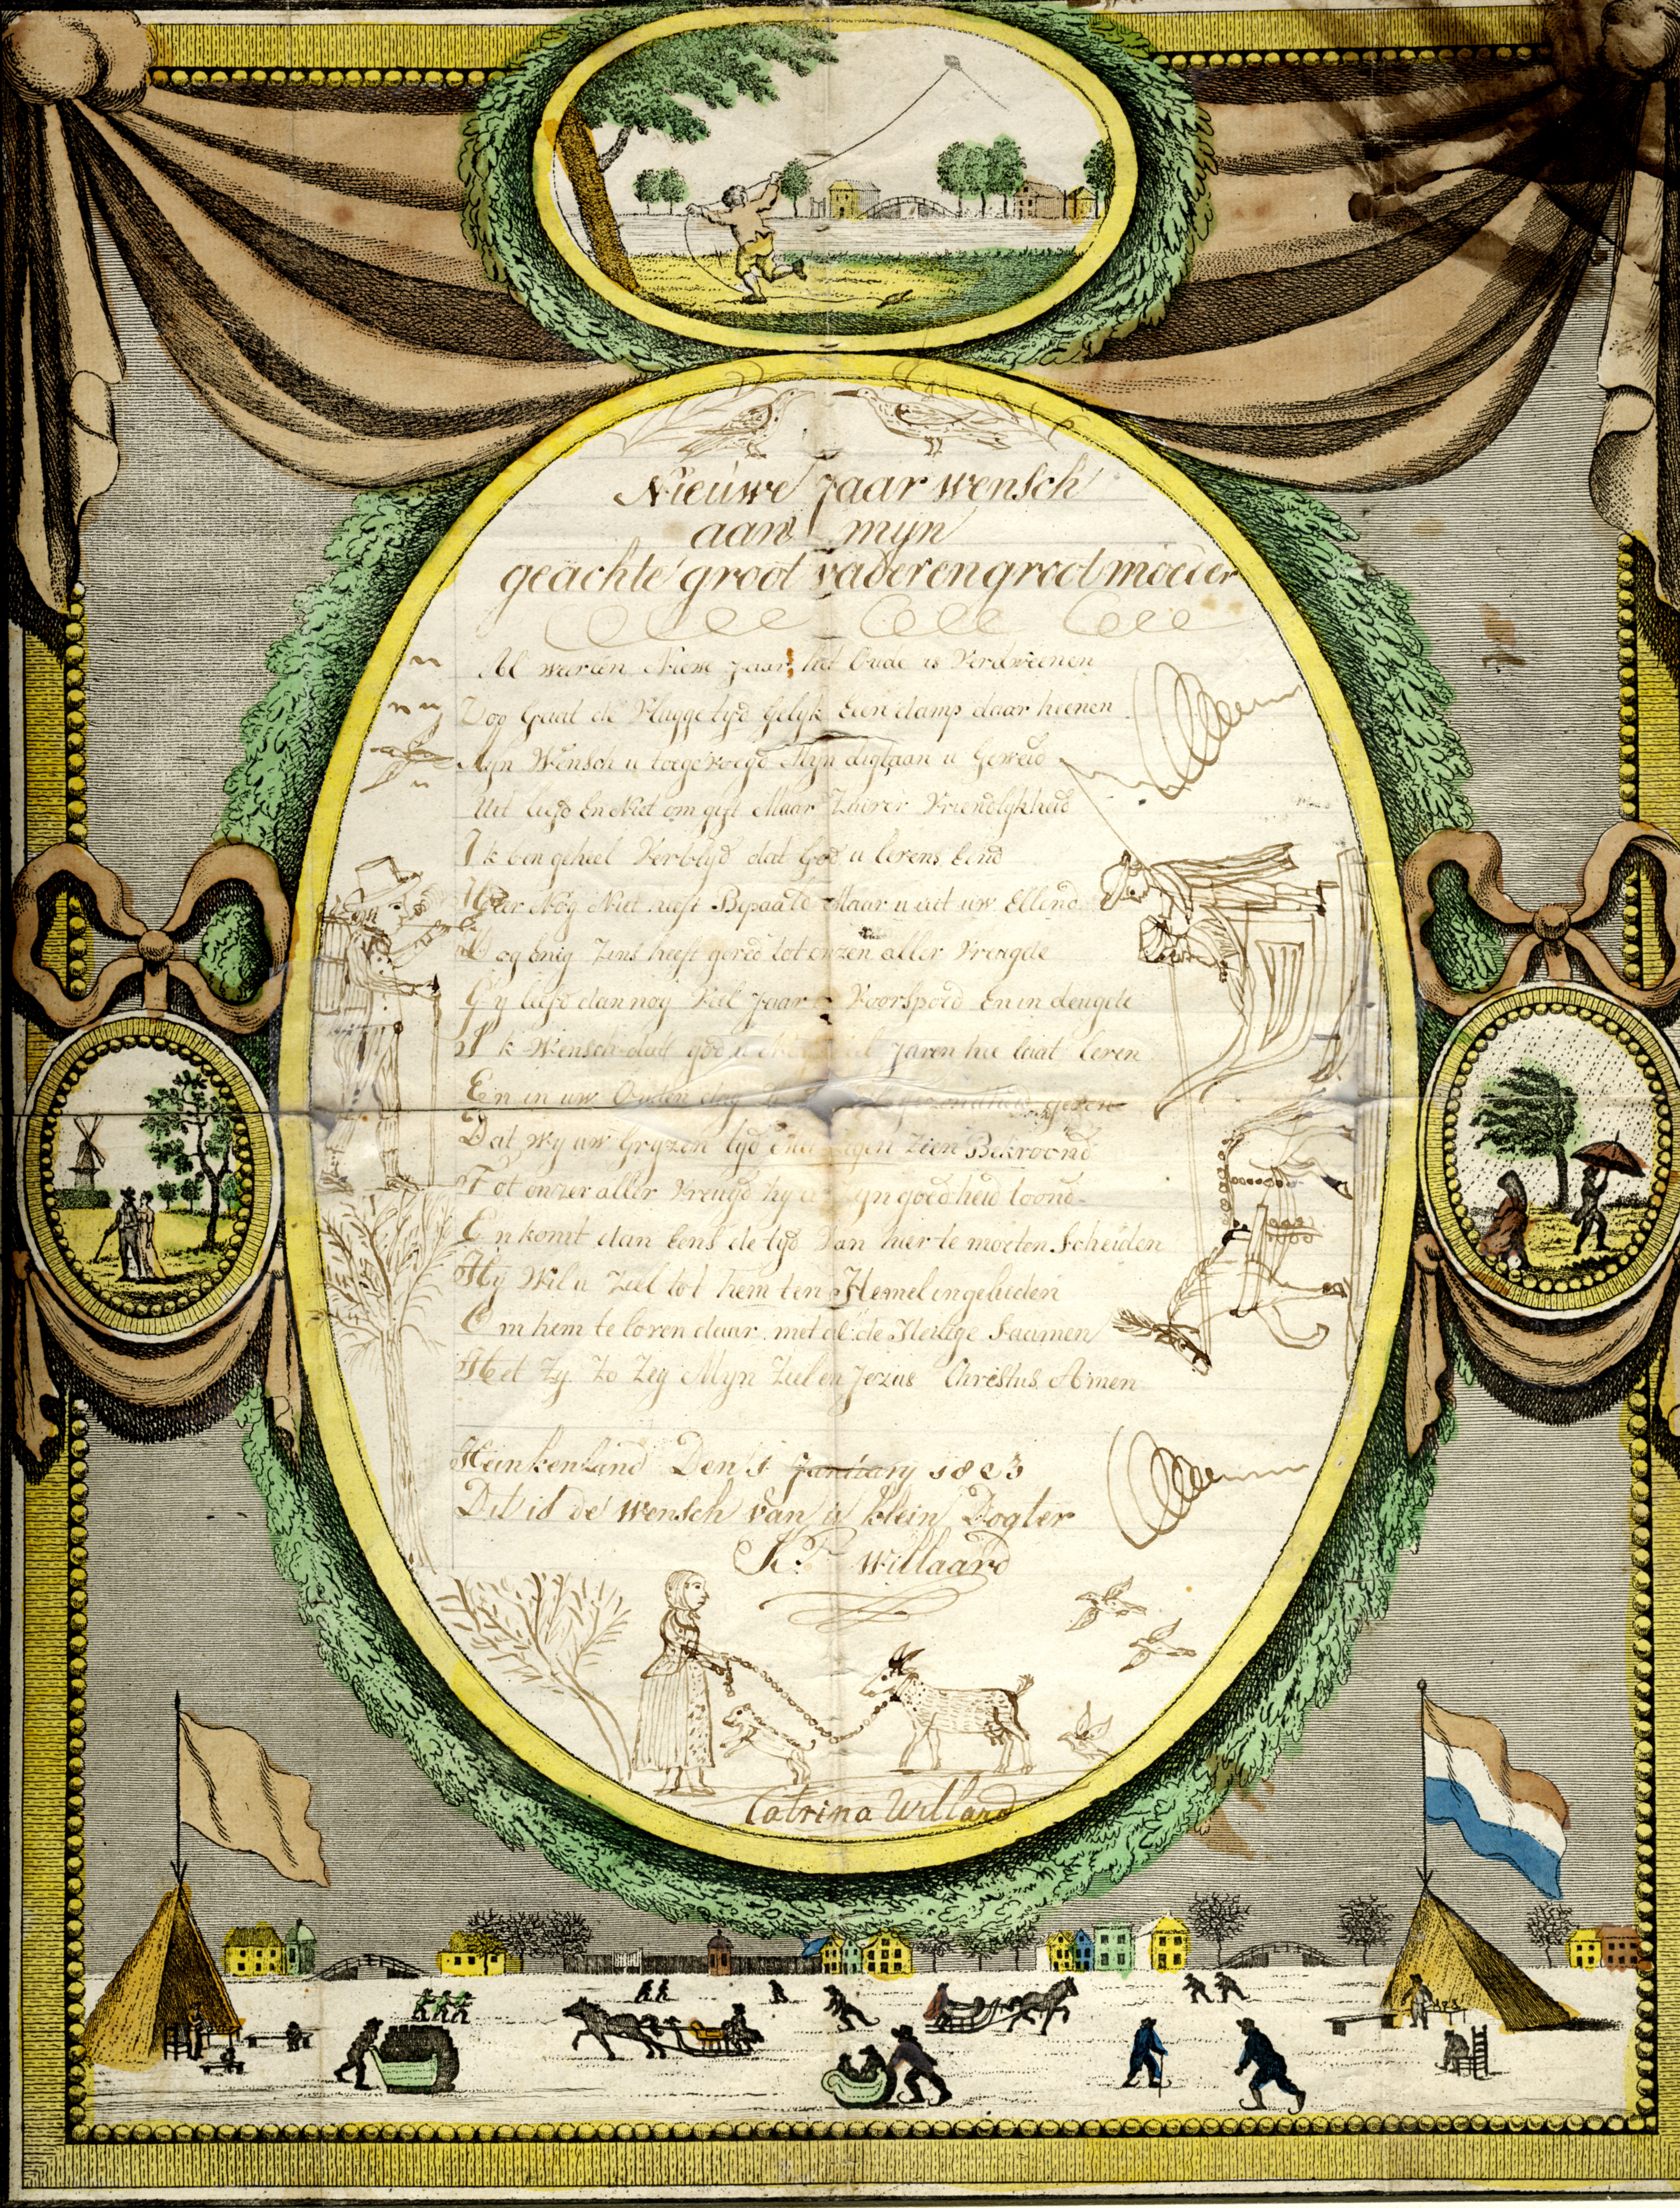 Nieuwe Jaar wensch
aan mijn
geachte groot vader en groot moeder
Al weer een Nieuw Jaar, het Oude is Verdweenen
Zoo Gaat de Vlugge tyd Gelyk Een damp daar heenen
Myn Wensch u toegevoegd Myn digt aan u Geweid
Uit liefd En Niet om gift Maar Zuiver Vriendlykheid
Ik ben geheel Verblyd dat God u levens Eind
Nog Niet heeft Bepaald Maar u uit uw Ellend
Nog Enig Zins heeft gered tot onzen aller Vreugde
Gy leeft dan nog Veel Jaar Voorspoed En in deugde
Ik Wensch dat god u Jaren hie laat leven
En in uw Ouden dag geven
Dat wy uw Gryzen tyd zien Bekroond
Tot onzer aller Vreugd hy u zyn goedheid loond
En komt dan Eens de tyd Van hier te moeten Scheiden
Hy Wil u Ziel tot hem ten Hemel ingeleiden
Om hem te loven daar met al de Heilige Saamen
Het Zy Zo Zeg Myn Ziel en Jezus Christus Amen
Heinkenland Den 1 January 1823
Dit is de wensch van u klein Dogter
K P willaard
Catrina Willard